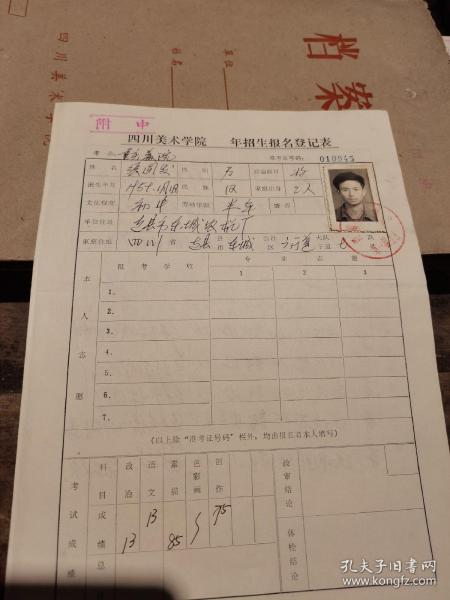 档案
单位
姓名
四川美术学院
附中
四川美术学院 年招生报名登记表
考点 重庆
准考证号码: 010045
姓名 性别 男
出生年月 民族 汉 家庭出身 工人
文化程度 初中 劳动年限 半年
单位住址 达县市东城农机厂
家庭住址 四川 省 达县 县市 东城 公社区 大队
本人志愿
报考学校 专业志愿
1 2 3
1.
2.
3.
4.
5.
6.
7.
(以上除“准考证号码”栏外,均由报名者本人填写)
考试成绩
科目 政治 语文 素描 色彩画 创作
成绩 13 13 85 75
总
政审结论
体检结论
孔夫子旧书网
www.kongfz.com